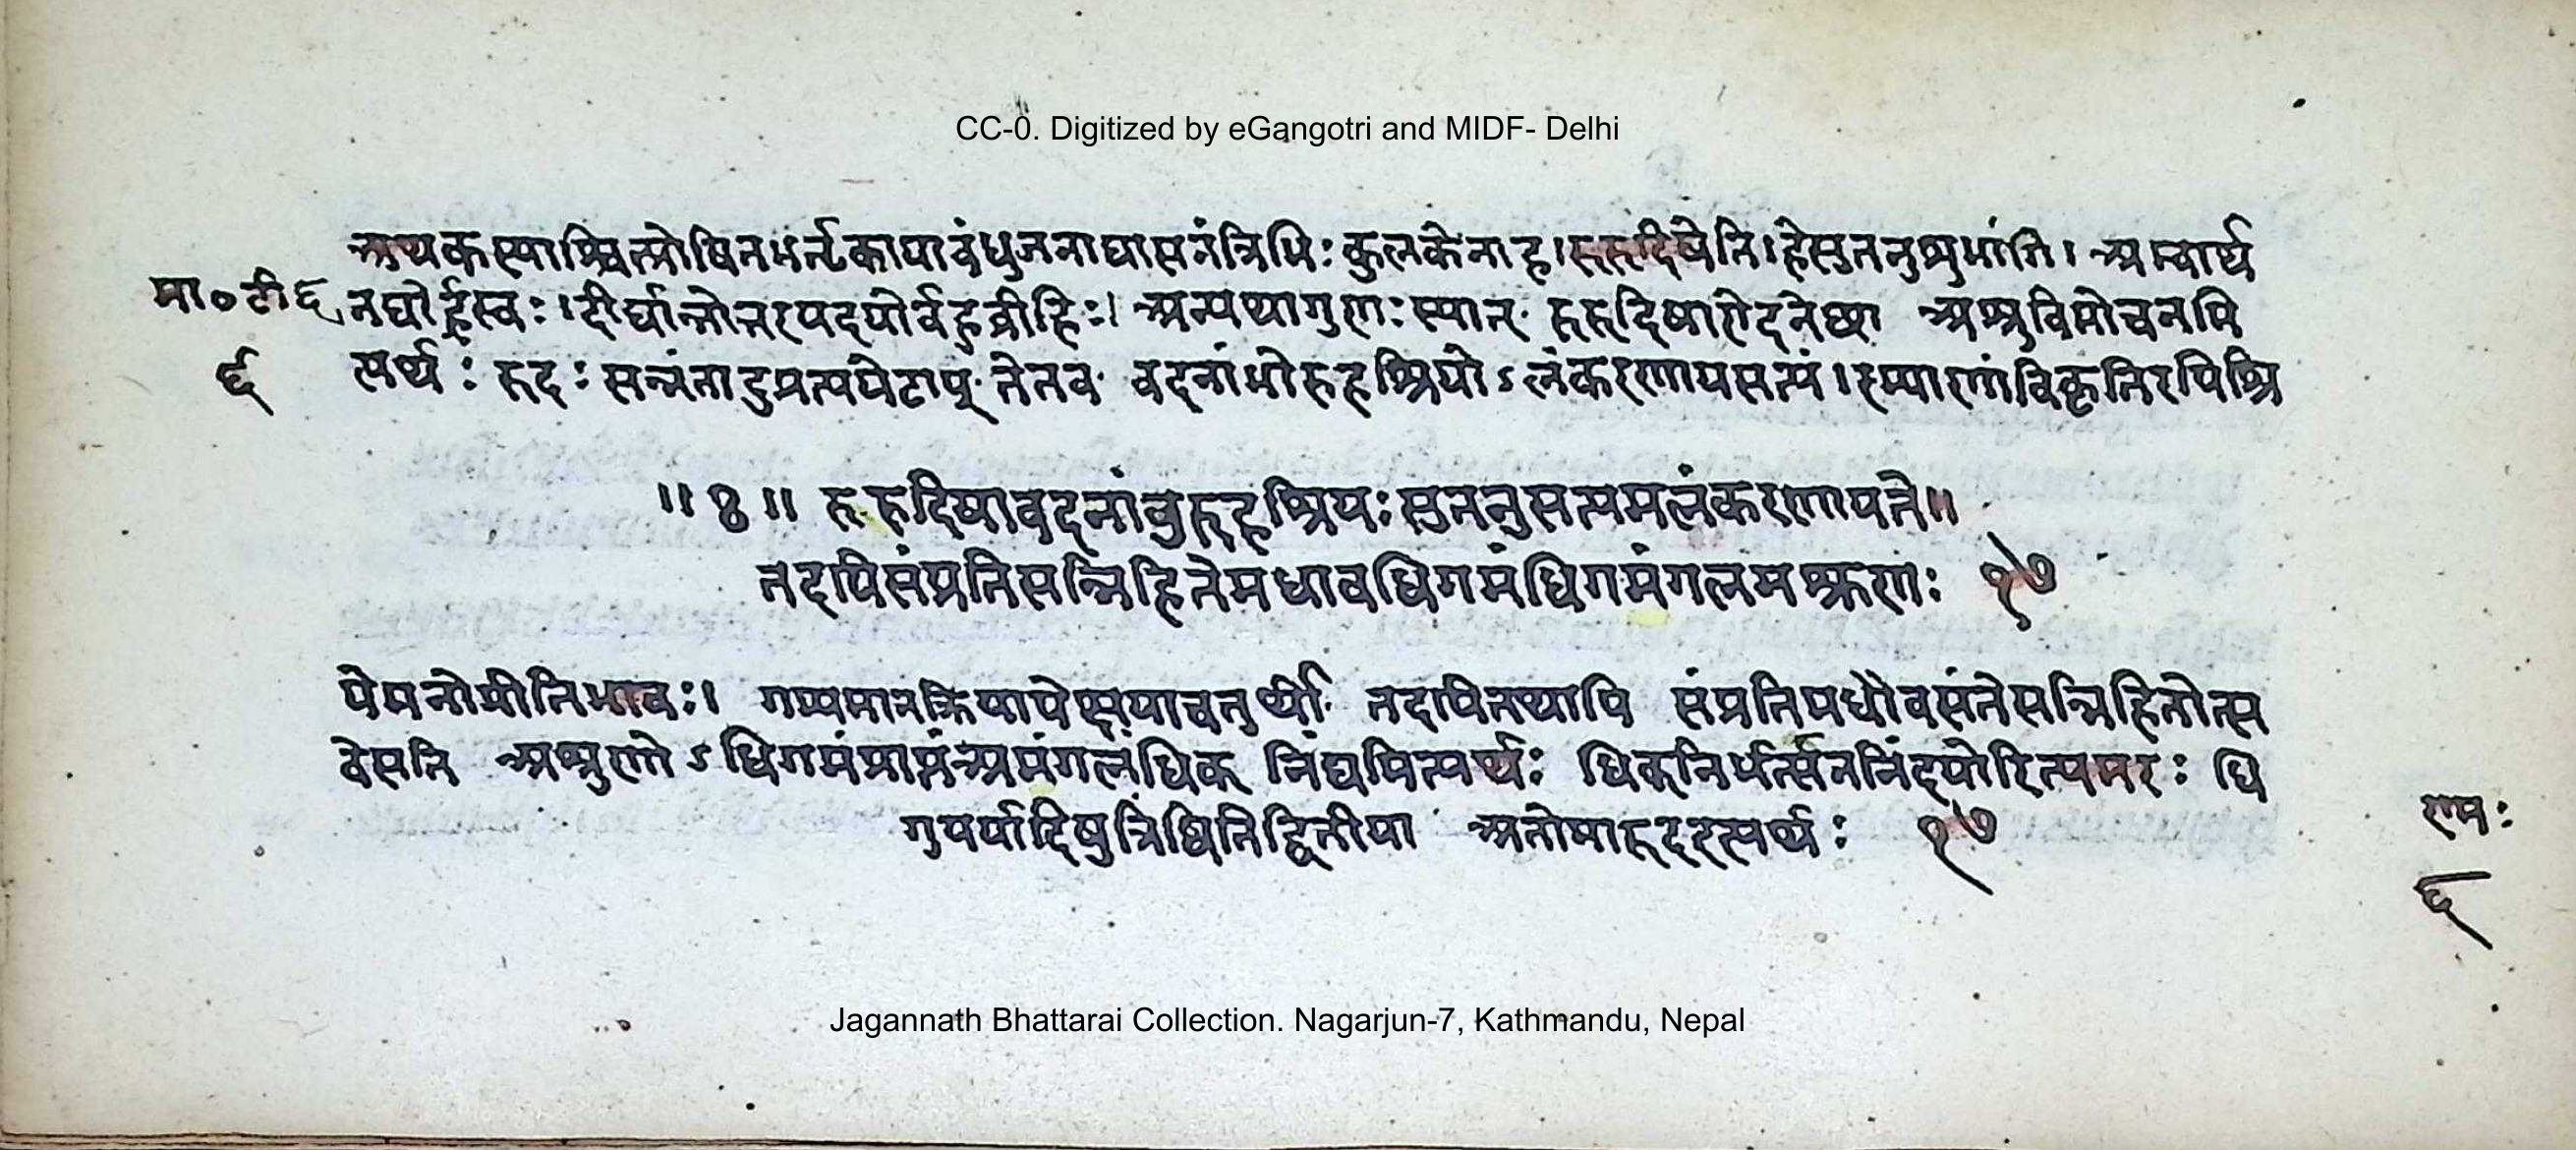 CC-0. Digitized by eGangotri and MIDF- Delhi
अथकस्याश्चित्प्रोषितभर्तृकायाबंधुजनाश्वासनंत्रिभिः कुलकेनाह।रुरुदिषेति।हेसुतनुशुभांगि। अम्बार्थ
मा० टी ६ नद्योर्ह्रस्वः।दीर्घान्तोत्तरपदयोर्बहुव्रीहिः। अन्यथागुणःस्यात् रुरुदिषारोदनेच्छा अश्रुविमोचनमि
६ त्यर्थः रुदः सन्नंतादप्रत्ययेटाप् तेतव वदनांभोरुहश्रियोऽलंकरणायसत्यं।रम्याणांविकृतिरपिश्रि
॥४॥ रुरुदिषावदनांबुरुहश्रियःसुतनुसत्यमलंकरणायते॥
तदपिसंप्रतिसन्निहितेमधावधिगमंधिगमंगलमश्रुणः १७
यंतनोतीतिभावः। गम्यमानक्रियापेक्षयाचतुर्थी तदपितथापि संप्रतिमधौवसंतेसन्निहितोत्स
वेसति अश्रुणोऽधिगमंप्राप्तंअमंगलंधिक् निंद्यमित्यर्थः धिक्निर्भर्त्सननिंदयोरित्यमरः धि
गुपर्यादिषुत्रिष्वितिद्वितीया अतोमारुदइत्यर्थः १७
रामः
६
Jagannath Bhattarai Collection. Nagarjun-7, Kathmandu, Nepal